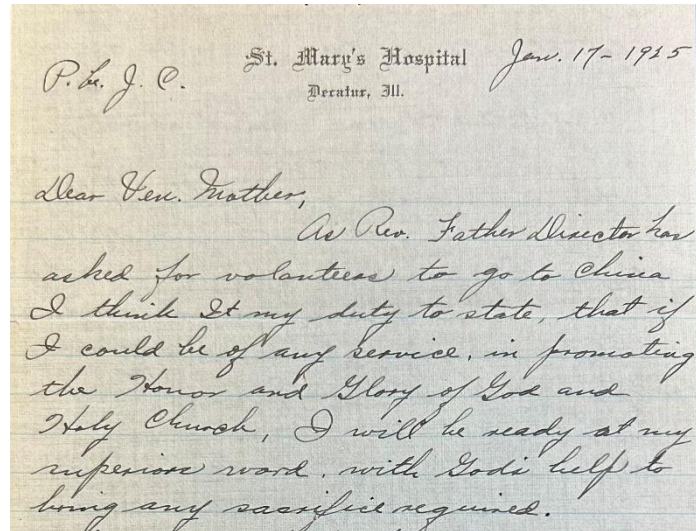 St. Mary's Hospital
Decatur, Ill.
Jan. 17 - 1925
P. be. J. C.
Dear Ven. Mother,
As Rev. Father Director has
asked for volanteers to go to China
I think It my duty to state, that if
I could be of any service, in promoting
the Honor and Glory of God and
Holy Church, I will be ready at my
superiors word. with God's help to
bring any sacrifice required.